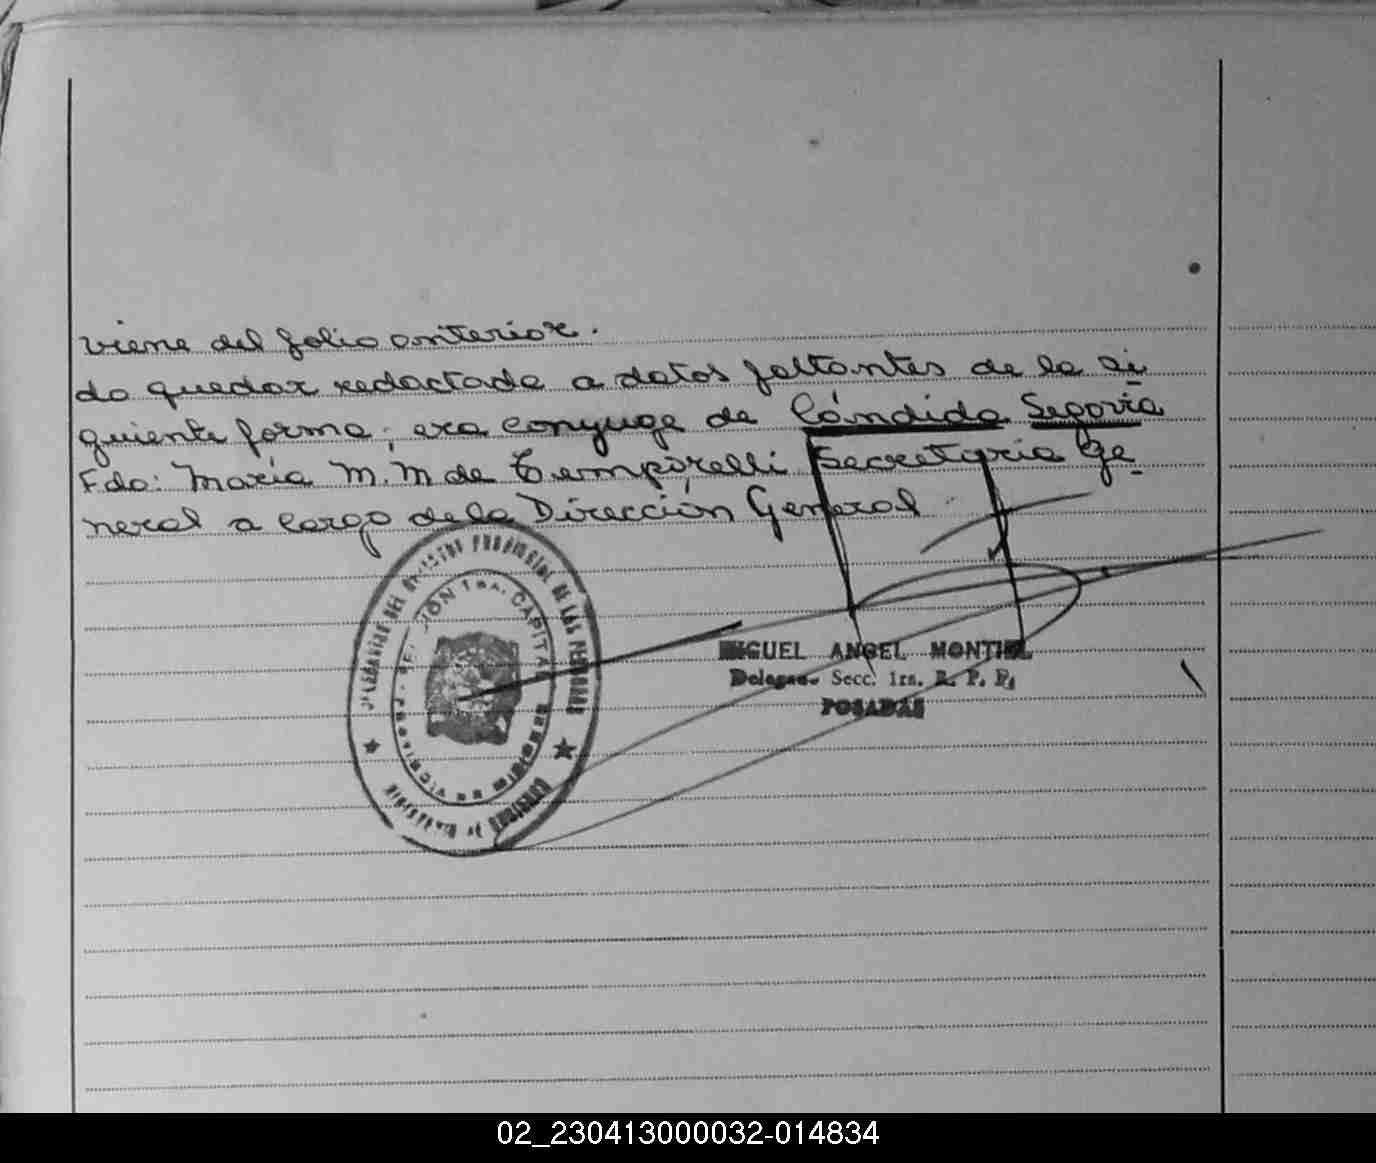 viene del folio anterior.
do quedar redactada a datos faltantes de la si
guiente forma; era conyuge de Cándido Segovia
Fdo: María M. M de Tempirelli Secretaria Ge
neral a cargo de la Dirección General
REGISTRO PROVINCIAL DE LAS PERSONAS
1RA. CAPITAL
MISIONES
MIGUEL ANGEL MONTIEL
Delegado Secc. 1ra. R. P. P.
POSADAS
02_230413000032-014834